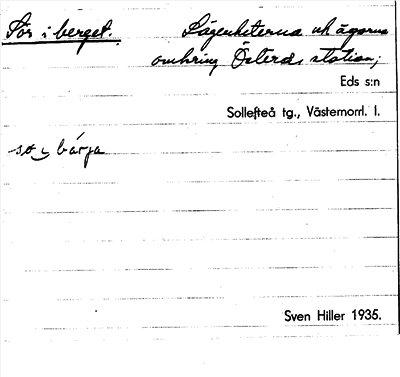 Sör i berget. Lägenheterna och ägorna
omkring Österås station;
Eds s:n
Sollefteå tg., Västernorrl. l.
Sven Hiller 1935.